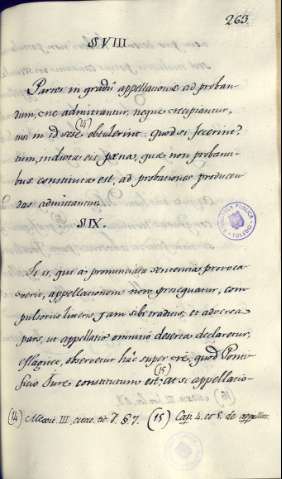 263
§ VIII.
Partes in gradu appellationis ad proban-
dum, ne admittantur, neque excipiantur,
nisi in id sese (14) obtulerint: quod si fecerint,
tum, indicta eis pœna, quæ non probanti-
bus constituta est, ad probationes producen-
das admittantur.
§ IX.
Si is, qui à pronunciata sententia provoca-
verit, appellationem non prosequatur, com-
pulsorias litteras, jam sibi traditas, et adversa
pars, ut appellatio omnino deserta declaretur,
observetur hâc super re, quod Ponti-
ficio Jure constitutum est, (15) at se appellatio-
(14) III, tit. 7. § 7. (15) Cap. 4. et 8. de appellat.